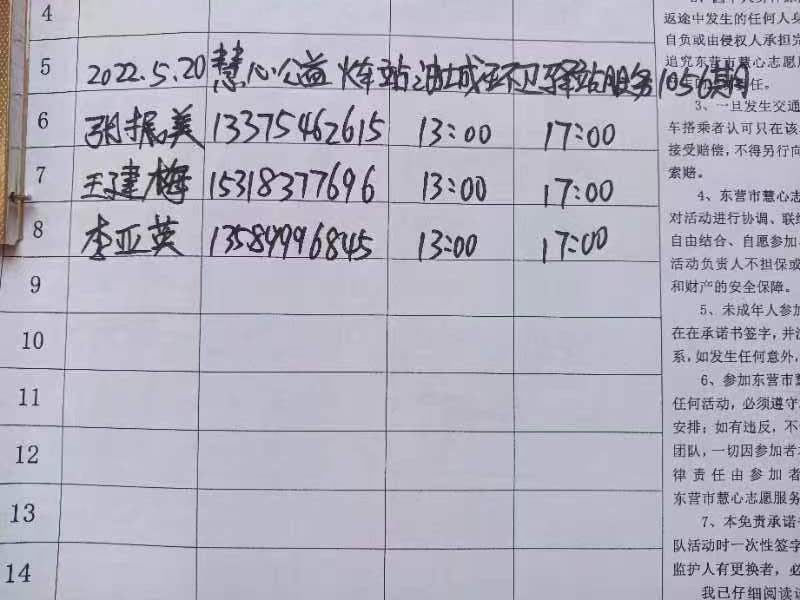 4
返途中发生的任何人身
自负或由侵权人承担完
追究东营市慧心志愿服
5 2022.5.20 慧心公益 火车站油城环卫驿站服务1056期
任。
6 张振美 13375462615 13:00 17:00
3、一旦发生交通
车搭乘者认可只在该
接受赔偿，不得另行向
索赔。
7 王建梅 15318377696 13:00 17:00
4、东营市慧心志
对活动进行协调、联络
自由结合、自愿参加
活动负责人不担保或
和财产的安全保障。
8 李亚英 13589996845 13:00 17:00
9
5、未成年人参加
在在承诺书签字，并
系，如发生任何意外，
10
6、参加东营市慧
任何活动，必须遵守
安排；如有违反，不
团队，一切因参加者
律责任由参加者
东营市慧心志愿服务
11
12
13
7、本免责承诺书
队活动时一次性签字
监护人有更换者，必
我已仔细阅读
14